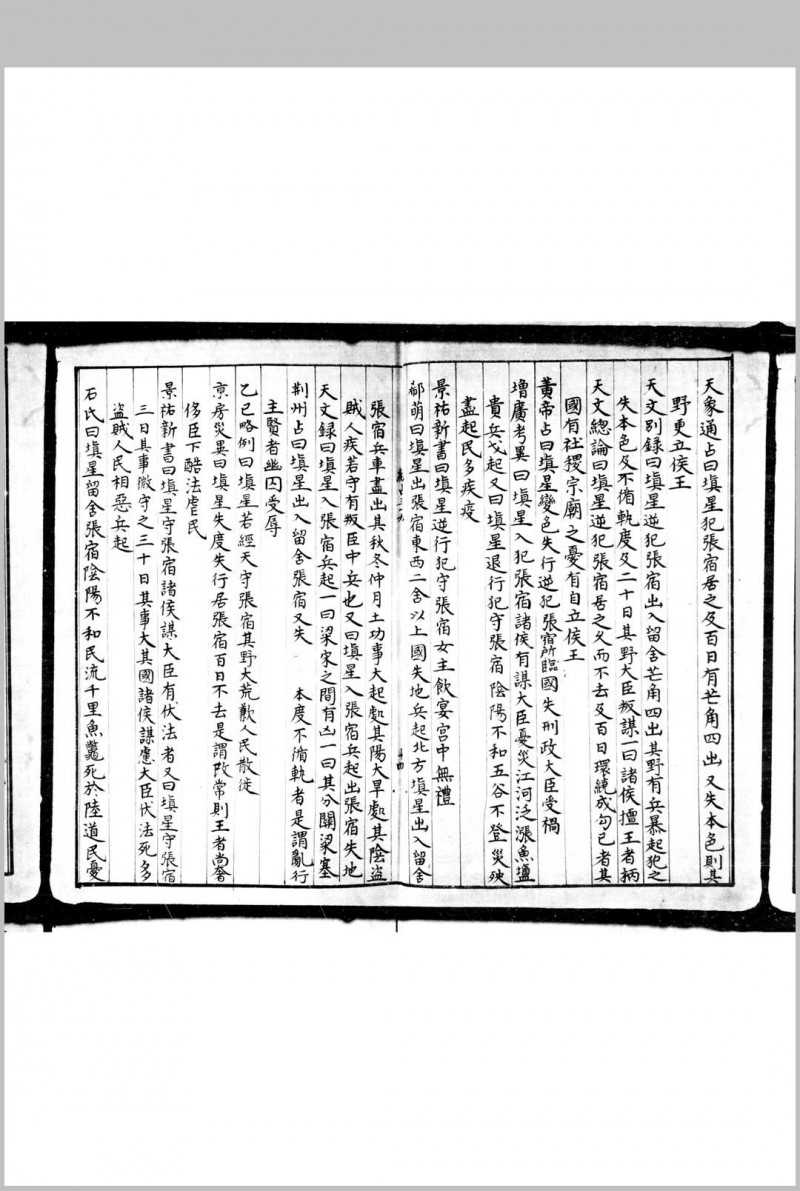 天象通占曰塡星犯張宿居之及百日有芒角四出又失本色則其
野更立侯王
天文別録曰塡星逆犯張宿出入留舍芒角四出其野有兵暴起犯之
失本色及不循軌度及二十日其野大臣叛謀一曰諸侯擅王者柄
天文總論曰塡星逆犯張宿居之久而不去及百日環繞成勾己者其
國有社稷宗廟之憂有自立侯王
黃帝占曰塡星變色失行逆犯張宿所臨國失刑政大臣受禍
增廣考異曰塡星入犯張宿諸侯有謀大臣憂災江河泛漲魚鹽
貴兵戈起又曰塡星退行犯守張宿陰陽不和五谷不登災殃
盡起民多疾疫
景祐新書曰塡星逆行犯守張宿女主飲宴宮中無禮
郗萌曰塡星出張宿東西二舍以上國失地兵起北方塡星出入留舍
廿四
張宿兵車盡出其秋冬仲月土功事大起處其陽大旱處其陰盜
賊人疾若守有叛臣中兵也又曰塡星入張宿兵起出張宿失地
天文録曰塡星入張宿兵起一曰梁宋之間有凶一曰其分關梁塞
荆州占曰塡星出入留舍張宿又失 本度不循軌者是謂亂行
主賢者幽囚受辱
乙巳略例曰塡星若經天守張宿其野大荒歉人民散徙
京房災異曰塡星失度失行居張宿百日不去是謂改常則王者尚奢
侈臣下酷法虐民
景祐新書曰塡星守張宿諸侯謀大臣有伏法者又曰塡星守張宿
三日其事微守之三十日其事大其國諸侯謀慮大臣伏法死多
盜賊人民相惡兵起
石氏曰塡星留舍張宿陰陽不和民流千里魚鼈死於陸道民憂